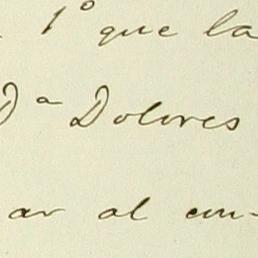 1º que la
Dª Dolores
ar al cum-